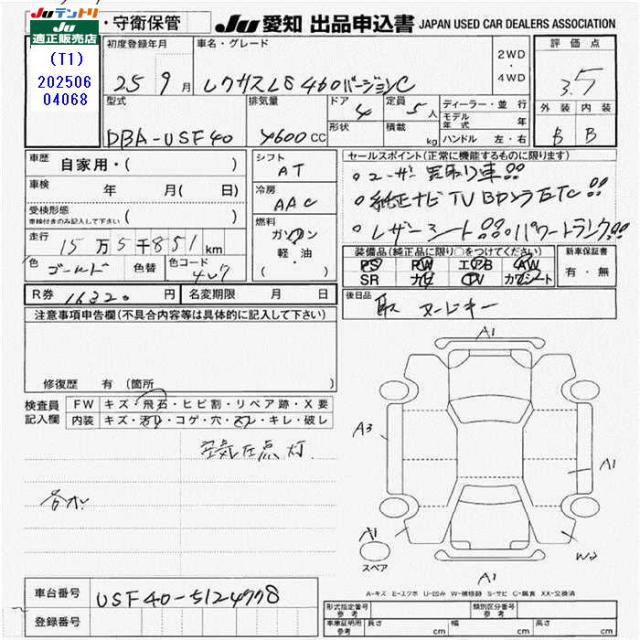 Juテントリ
Ju
適正販売店
(T1)
202506
04068
・守衛保管 Ju 愛知 出品申込書 JAPAN USED CAR DEALERS ASSOCIATION
初度登録年月 車名・グレード 2WD・4WD 評価点
25 9月 レクサスLS 460バージョンC 3.5
型式 排気量 ドア 4 定員 5人 ディーラー・並行 外装 内装
形状 積載 kg モデル年式 年
DBA-USF40 4600cc ハンドル 左・右 B B
車歴 自家用・( ) シフト AT セールスポイント(正常に機能するものに限ります)
車検 年 月(日) 冷房 AAC ・ユーザー買取り車!!
受検形態 車検付きのみ記入して下さい ( ) ・純正ナビTV BカメラETC!!
走行 15万5千851km 燃料 ガソリン 軽・油 ・レザーシート!!・パワートランク!!
色 ゴールド 色替 色コード 4U7 装備品(純正品に限り○をつけてください) 新車保証書
PS PW エアB AW 有・無
SR ナビ TV カワシート
R券 16320円 名変期限 月 日 後日品 取 ヌードキー
注意事項申告欄(不具合内容等は具体的に記入して下さい)
修復歴 有(箇所
検査員記入欄 FW キズ・飛石・ヒビ割・リペア跡・X要
内装 キズ・汚レ・コゲ・穴・スレ・キレ・破レ
空気圧点灯
A1
A3
A1
A1
スペア
W2
A1
A-キズ E-エクボ U-凹み W-補修跡 S-サビ C-腐食 XX-交換済
車台番号 USF40-5124778
登録番号
形式指定番号 参考 類別区分番号 参考
車庫証明用 参考 長さ cm 幅 cm 高さ cm